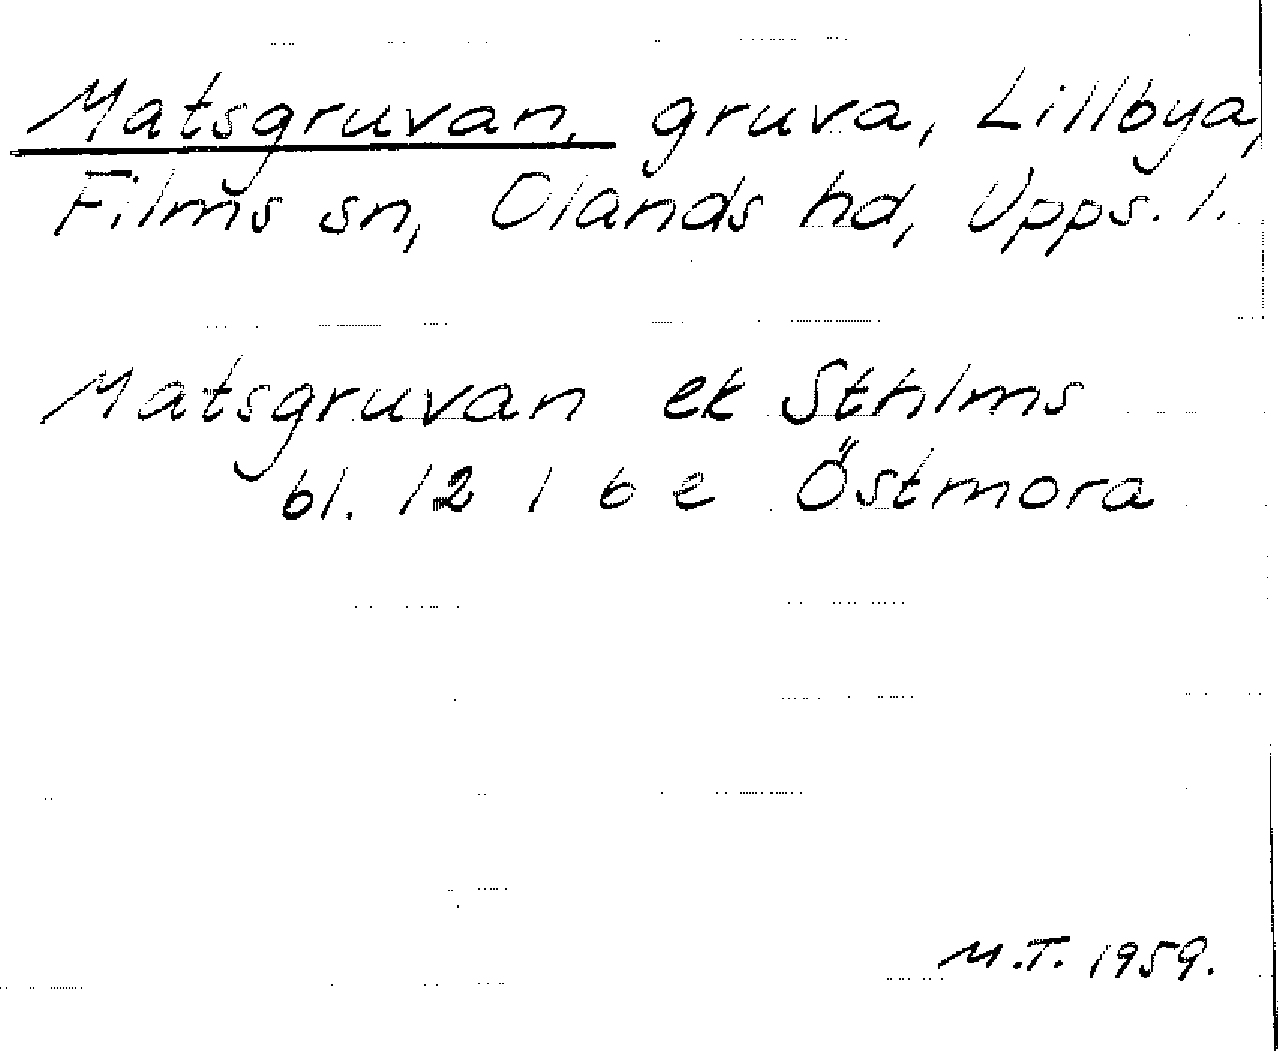 Matsgruvan, gruva, Lillbya,
Films sn, Olands hd, Upps. l.
Matsgruvan ek Sthlms
bl. 12 I 6 e Östmora
M.T. 1959.